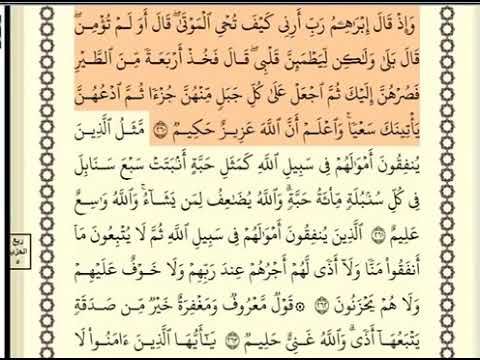 وَإِذْ قَالَ إِبْرَٰهِـۧمُ رَبِّ أَرِنِى كَيْفَ تُحْىِ ٱلْمَوْتَىٰ ۖ قَالَ أَوَلَمْ تُؤْمِن ۖ
قَالَ بَلَىٰ وَلَـٰكِن لِّيَطْمَئِنَّ قَلْبِى ۖ قَالَ فَخُذْ أَرْبَعَةً مِّنَ ٱلطَّيْرِ
فَصُرْهُنَّ إِلَيْكَ ثُمَّ ٱجْعَلْ عَلَىٰ كُلِّ جَبَلٍ مِّنْهُنَّ جُزْءًا ثُمَّ ٱدْعُهُنَّ
يَأْتِينَكَ سَعْيًا ۚ وَٱعْلَمْ أَنَّ ٱللَّهَ عَزِيزٌ حَكِيمٌ ٢٦٠ مَّثَلُ ٱلَّذِينَ
يُنفِقُونَ أَمْوَٰلَهُمْ فِى سَبِيلِ ٱللَّهِ كَمَثَلِ حَبَّةٍ أَنۢبَتَتْ سَبْعَ سَنَابِلَ
فِى كُلِّ سُنۢبُلَةٍ مِّا۟ئَةُ حَبَّةٍ ۗ وَٱللَّهُ يُضَـٰعِفُ لِمَن يَشَآءُ ۗ وَٱللَّهُ وَٰسِعٌ
عَلِيمٌ ٢٦١ ٱلَّذِينَ يُنفِقُونَ أَمْوَٰلَهُمْ فِى سَبِيلِ ٱللَّهِ ثُمَّ لَا يُتْبِعُونَ مَآ
أَنفَقُوا۟ مَنًّا وَلَآ أَذًى ۙ لَّهُمْ أَجْرُهُمْ عِندَ رَبِّهِمْ وَلَا خَوْفٌ عَلَيْهِمْ
وَلَا هُمْ يَحْزَنُونَ ٢٦٢ ۞ قَوْلٌ مَّعْرُوفٌ وَمَغْفِرَةٌ خَيْرٌ مِّن صَدَقَةٍ
يَتْبَعُهَآ أَذًى ۗ وَٱللَّهُ غَنِىٌّ حَلِيمٌ ٢٦٣ يَـٰٓأَيُّهَا ٱلَّذِينَ ءَامَنُوا۟ لَا
ربع
الحزب
٥